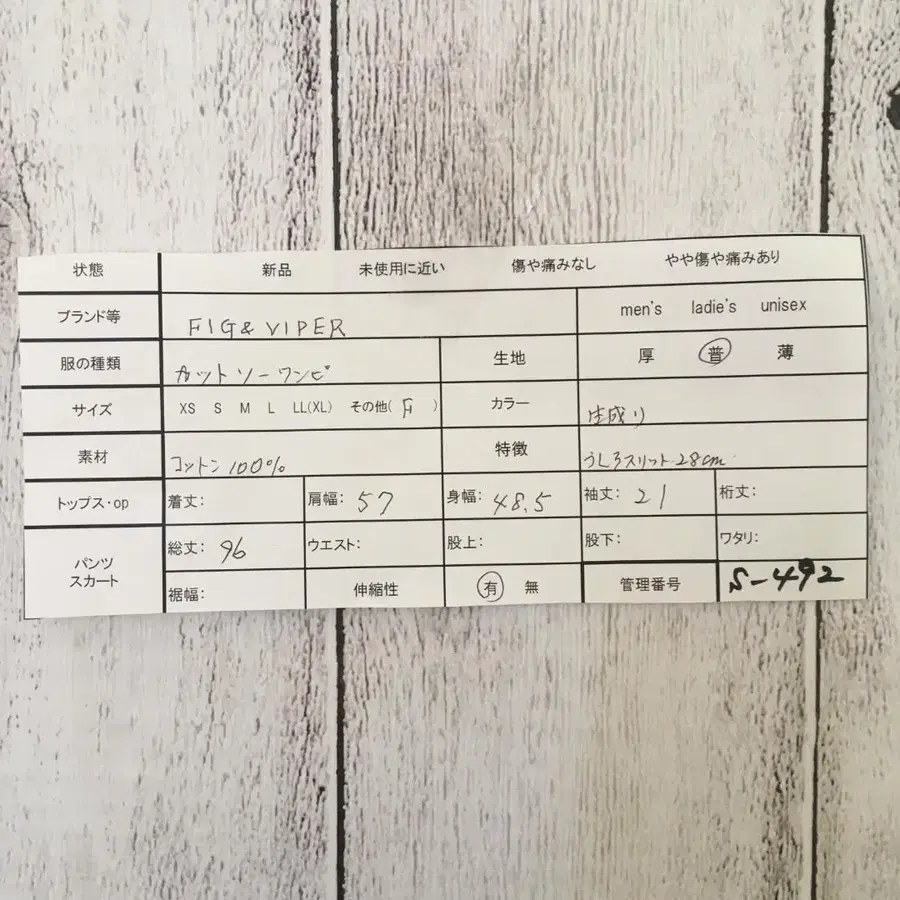 状態 新品 未使用に近い 傷や痛みなし やや傷や痛みあり
ブランド等 FIG& VIPER men's ladie's unisex
服の種類 カットソーワンピ 生地 厚 普 薄
サイズ XS S M L LL(XL) その他( F ) カラー 生成り
素材 コットン 100% 特徴 うしろスリット28cm
トップス・op 着丈: 肩幅: 57 身幅: 48.5 袖丈: 21 裄丈:
パンツ スカート 総丈: 96 ウエスト: 股上: 股下: ワタリ:
裾幅: 伸縮性 有 無 管理番号 S-492